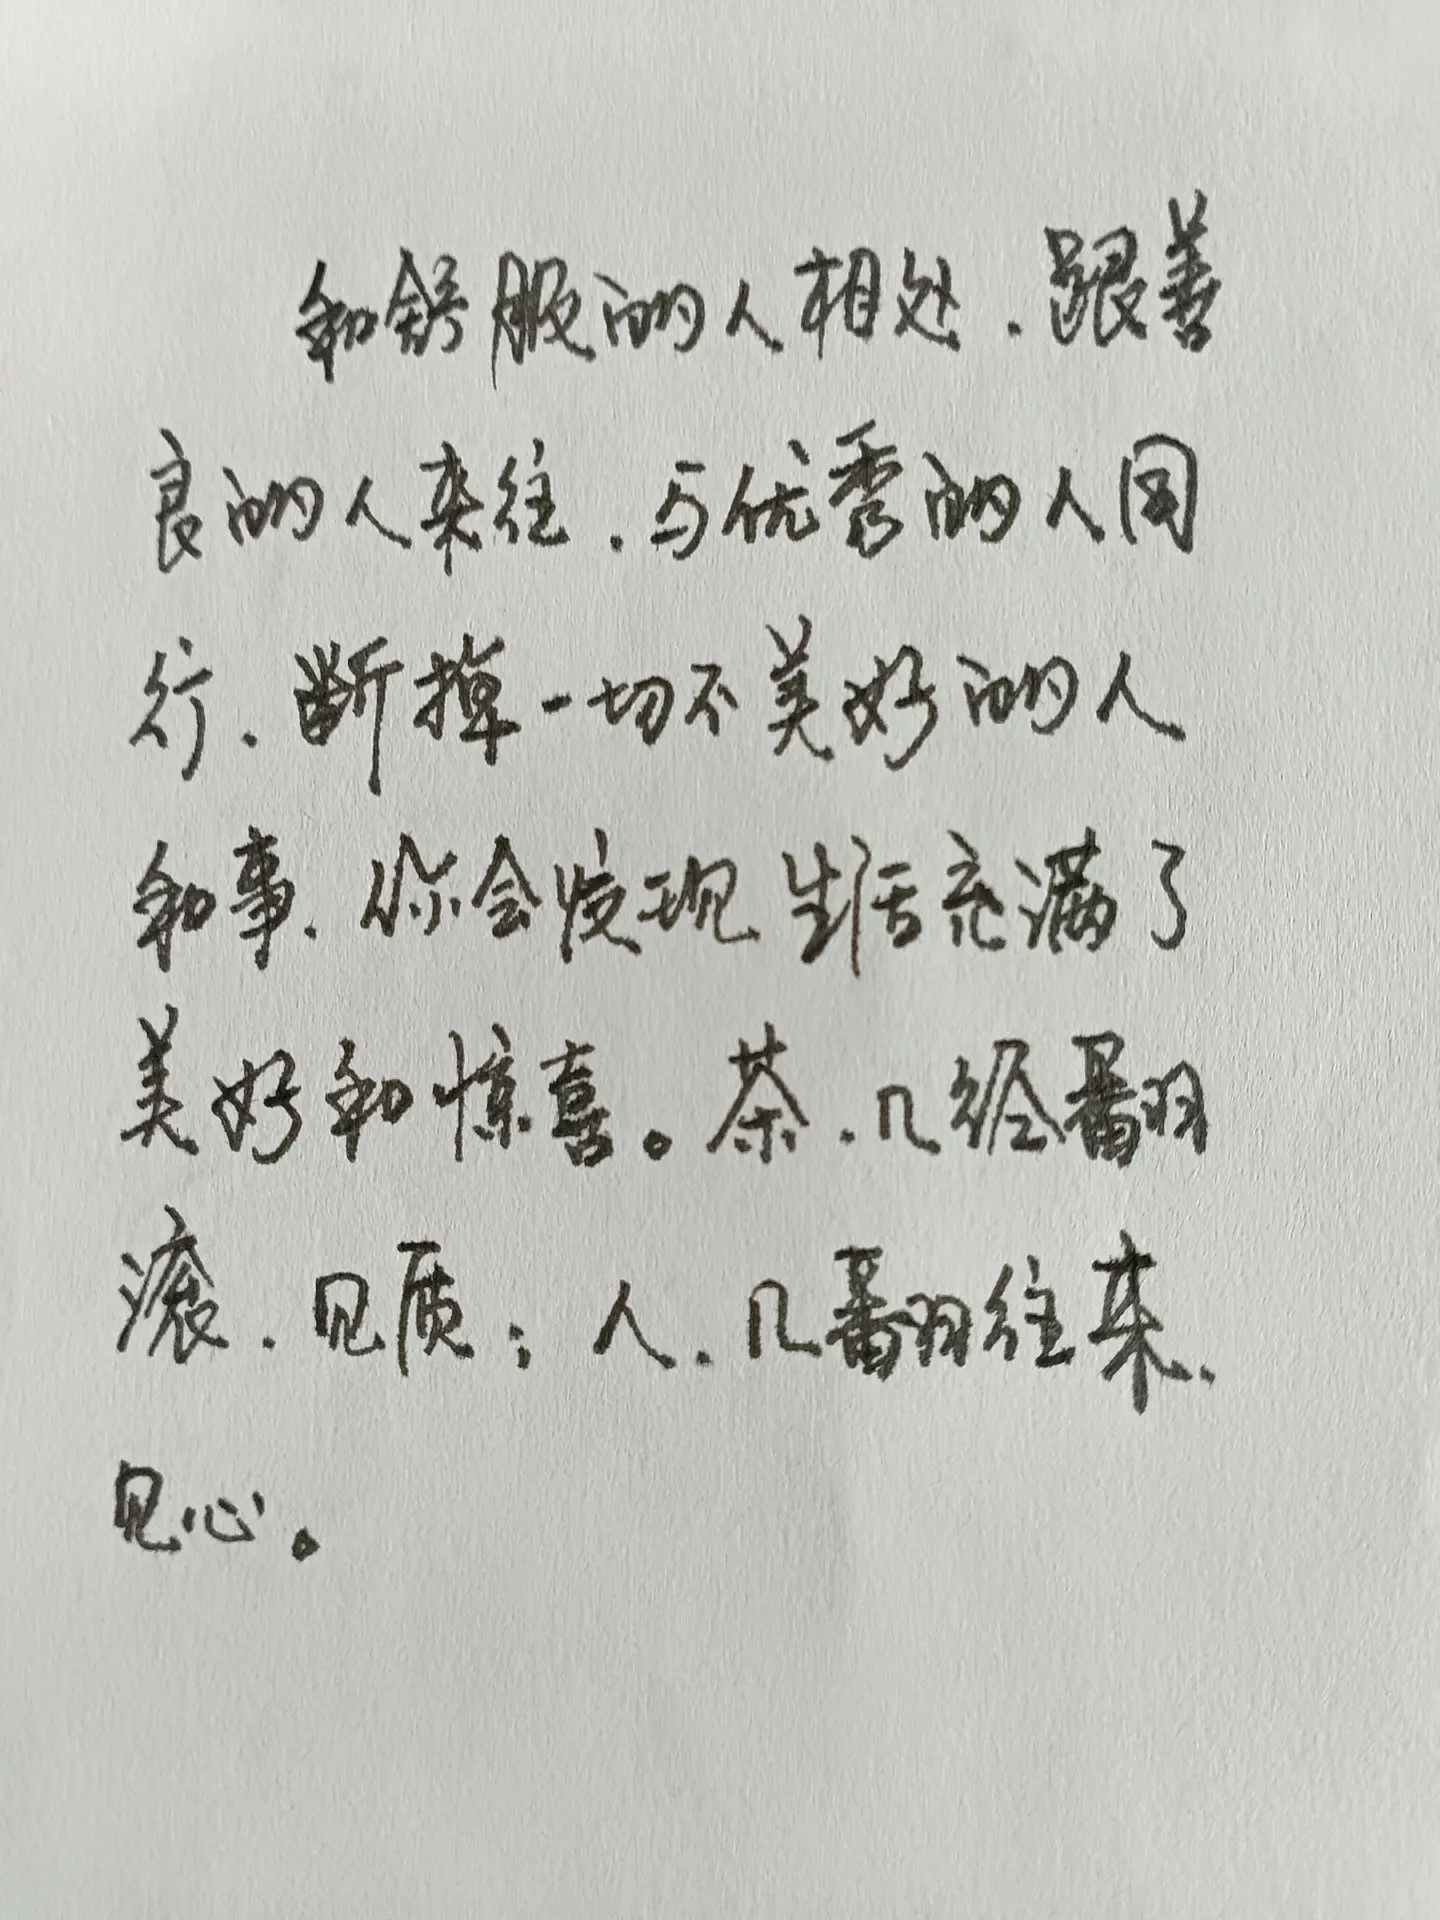 和舒服的人相处，跟善
良的人来往，与优秀的人同
行，断掉一切不美好的人
和事，你会发现生活充满了
美好和惊喜。茶，几经翻
滚，见质；人，几翻往来，
见心。